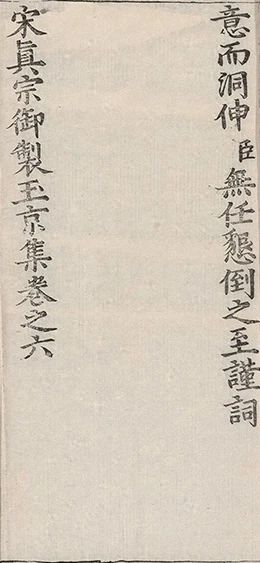 意而洞伸臣無任懇倒之至謹詞
宋真宗御製玉京集卷之六